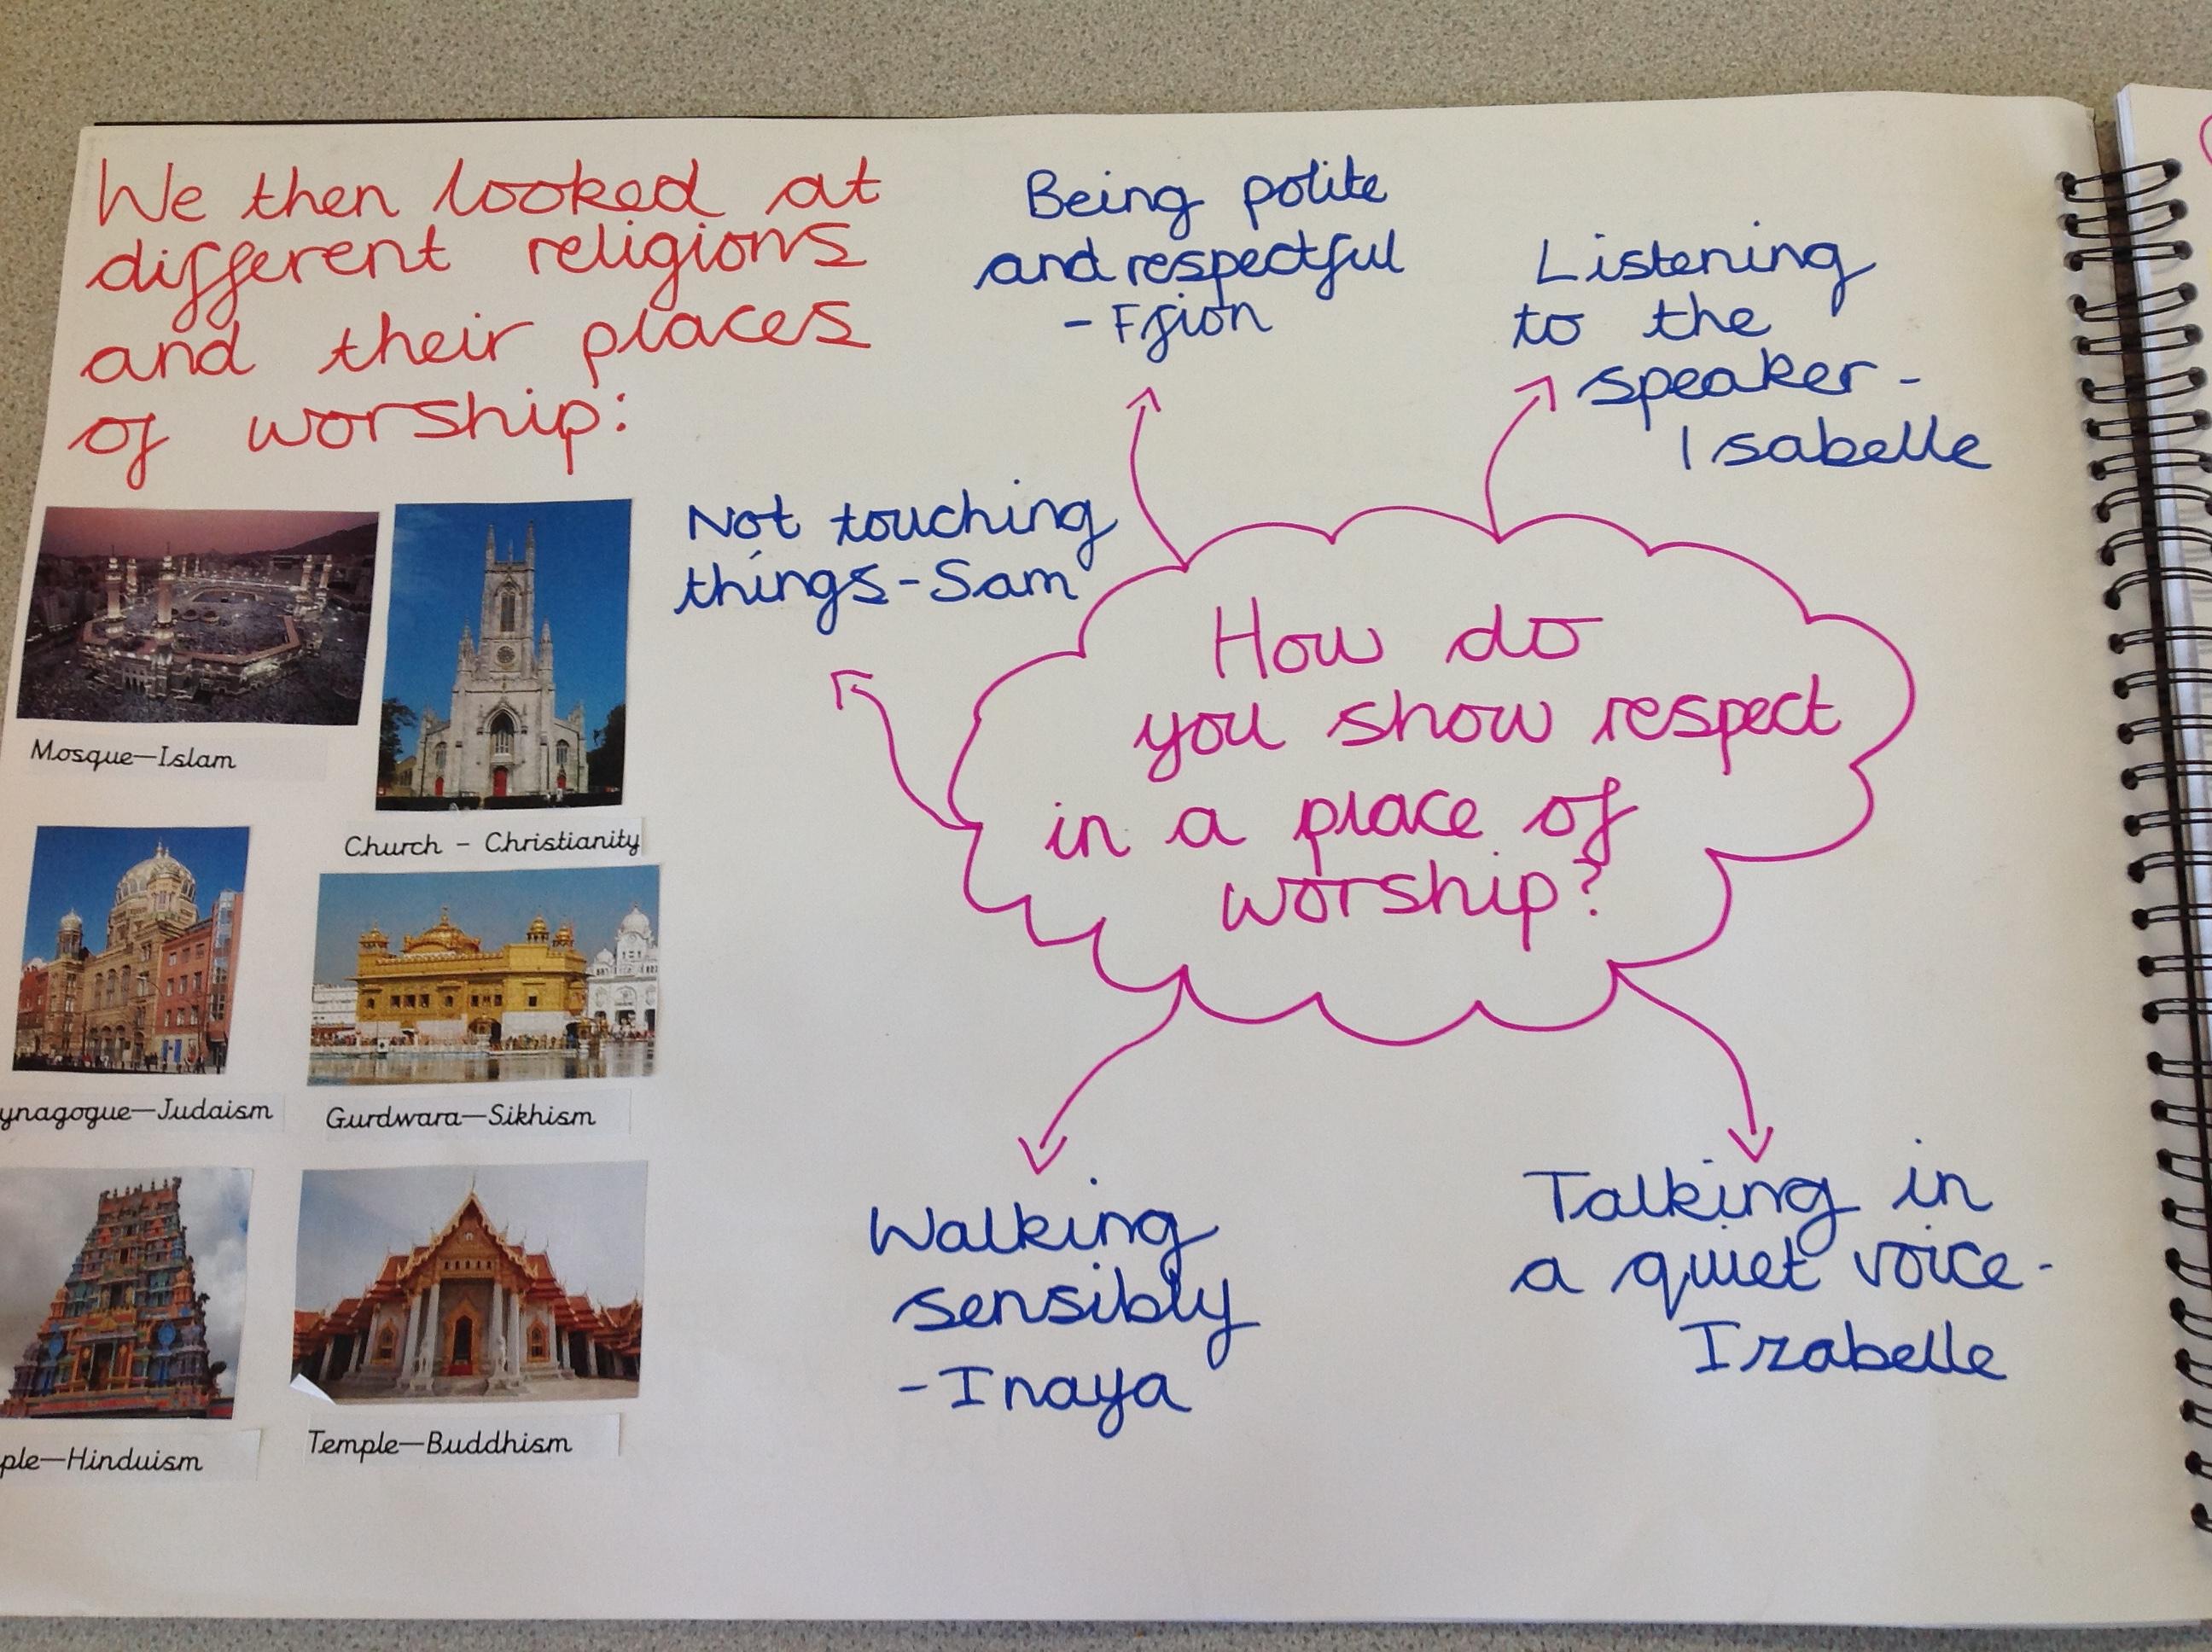 We then looked at
different religions
and their places
of worship:
Mosque—Islam
Church - Christianity
ynagogue—Judaism
Gurdwara—Sikhism
ple—Hinduism
Temple—Buddhism
Being polite
and respectful
- Ffion
Listening
to the
speaker -
Isabelle
Not touching
things - Sam
How do
you show respect
in a place of
worship?
Walking
sensibly
- Inaya
Talking in
a quiet voice -
Izabelle